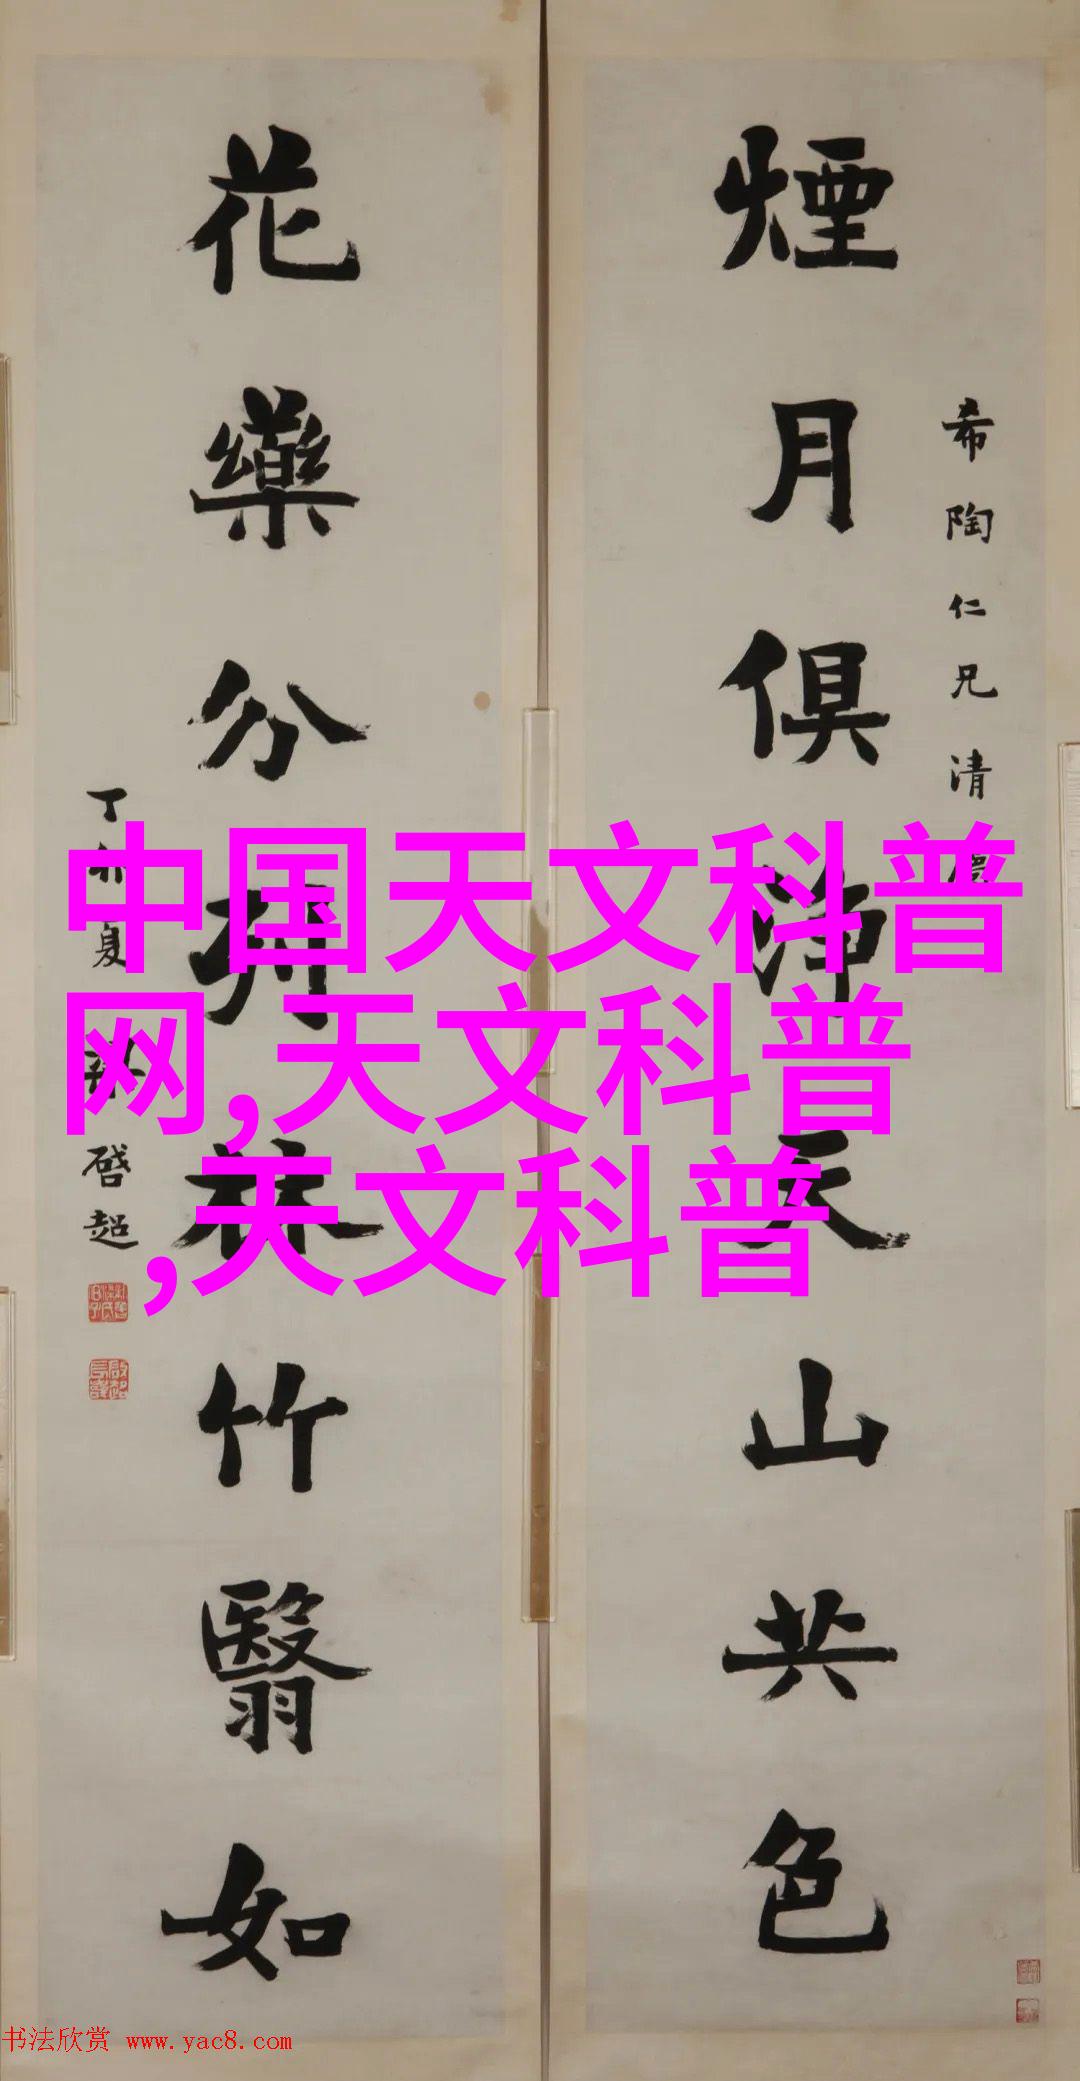 煙月俱淨天山共色
希陶仁兄清
花藥分列林竹翳如
丁卯夏
啓超
中国天文科普
网,天文科普
,天文科普
书法欣赏 www.yac8.com